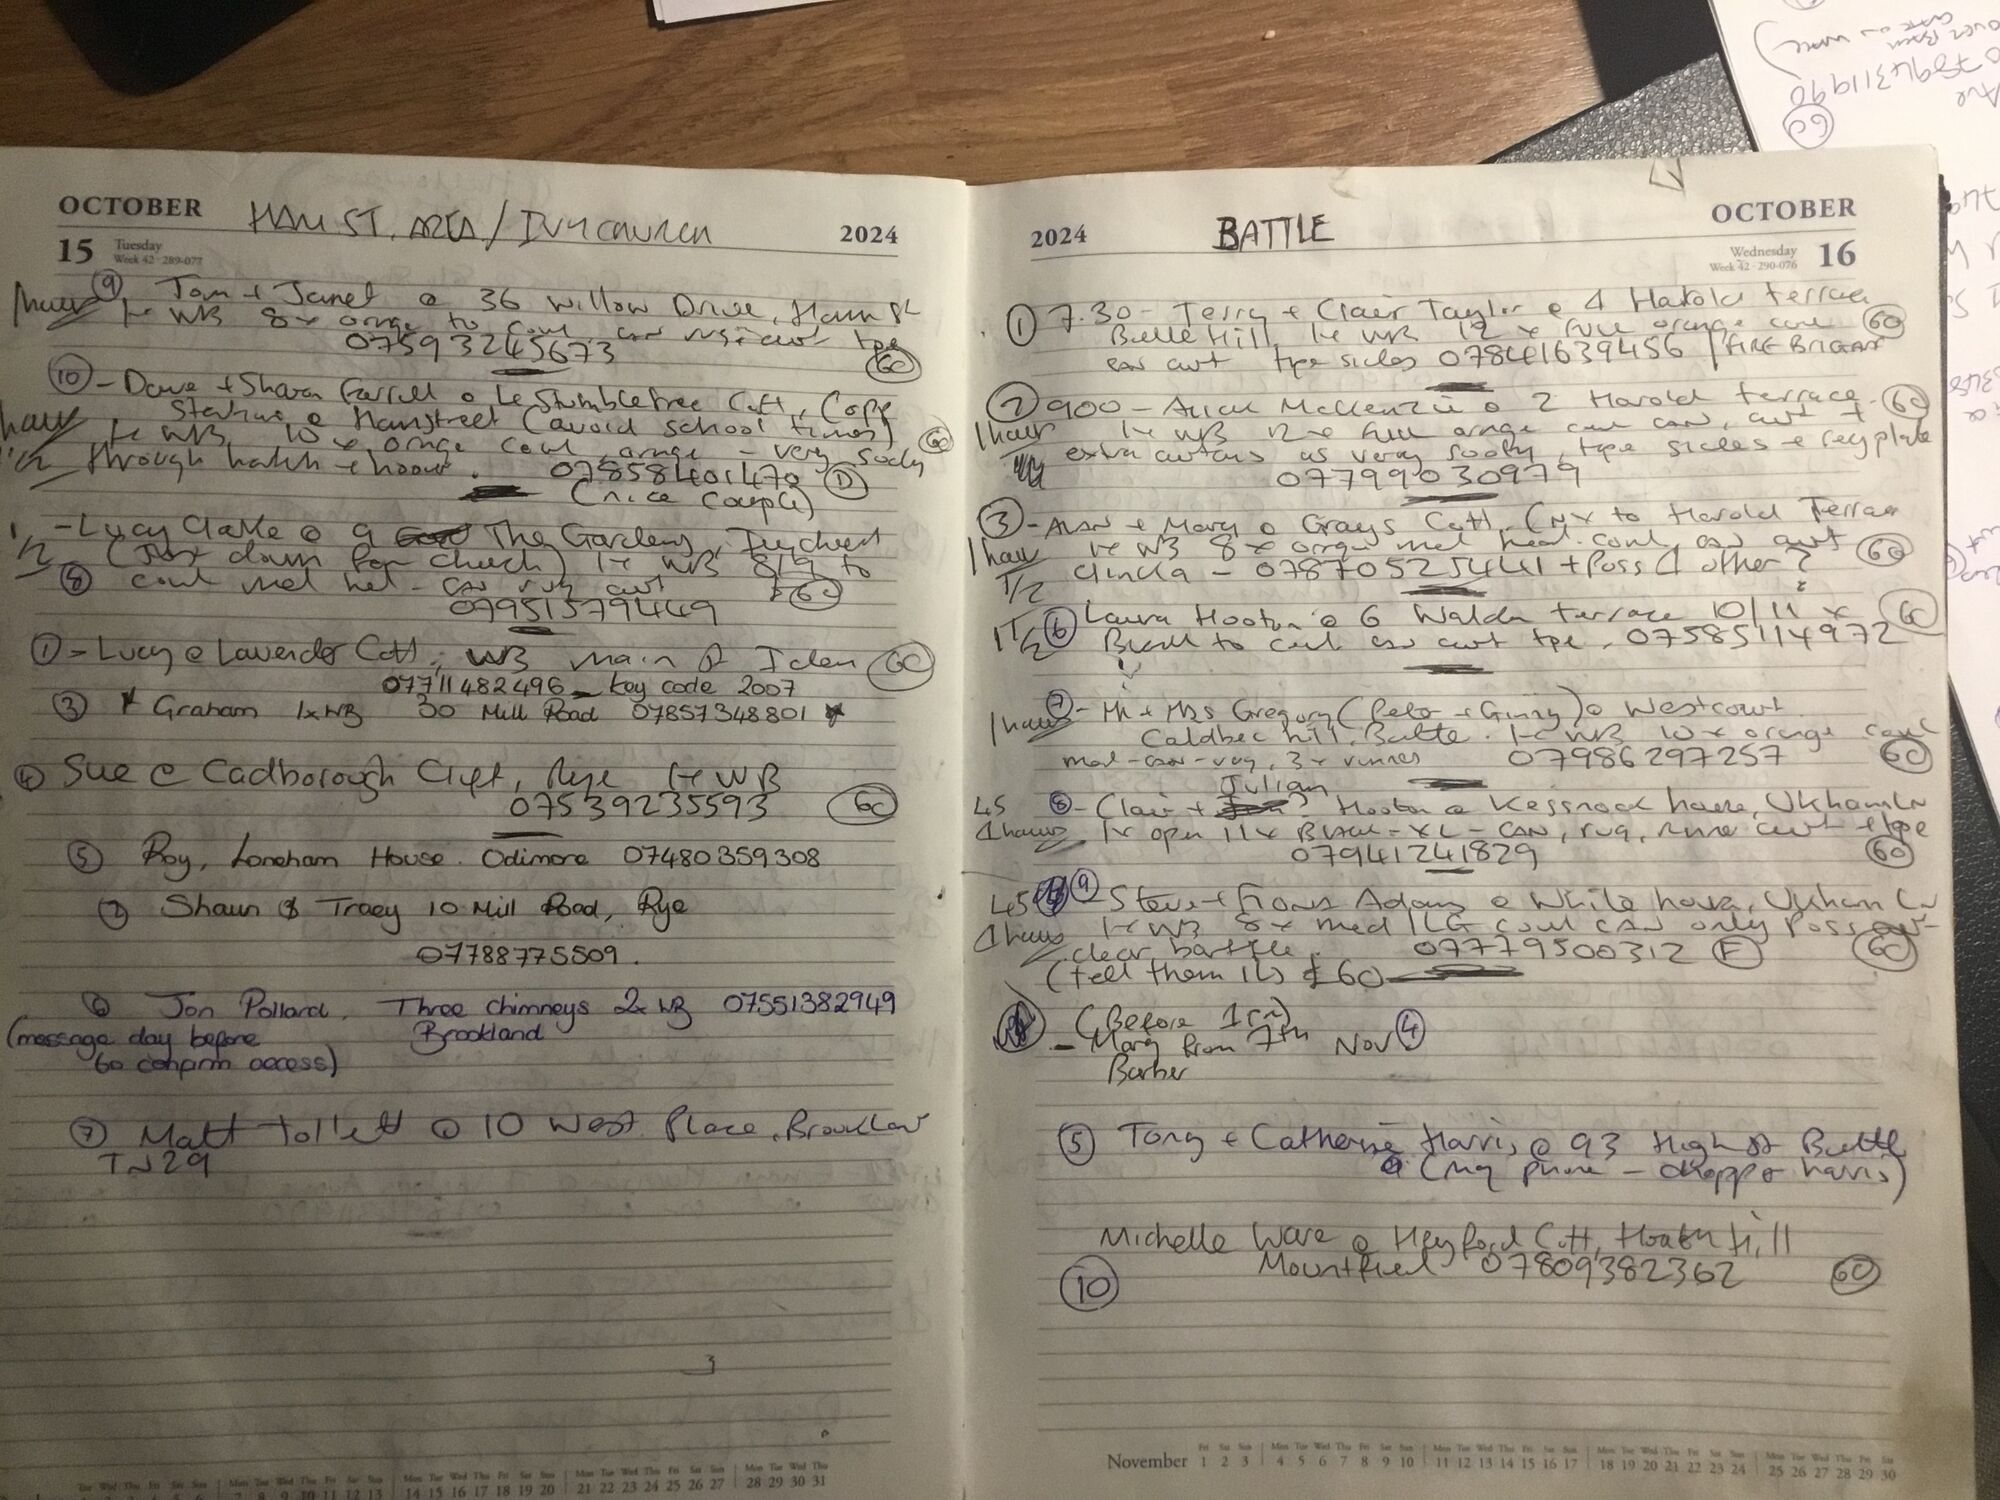 OCTOBER HAM ST. AREA / IVYCHURCH 2024
15 Tuesday
Week 42 · 289-077
⑨ Tom + Janet @ 36 Willow Drive, Ham St
1 hour 1x WB 8x orange to cowl can rug cwt tpe
07593245673 60
⑩ - Dave + Sharon Farrell @ Le Stumbletree Cott,
@ Hamstreet (avoid school times)
1 hour 1x WB, 10 x orange cowl, orange - very sooty 60
1/2 through hatch + hoover. 07858401470 D
(nice couple)
1 - Lucy Clarke @ 9 The Gardens, Ivychurch
1/2 (Just down from church) 1x WB 8/9 to
⑧ cowl met - can rug cwt 60
079515794449
① - Lucy @ Lavender Cott, WB main @ Iden 60
07711482496 - key code 2007
③ * Graham 1xWB 30 Mill Road 07857348801 *
④ Sue @ Cadborough Clift, Rye 1x WB
07539235593 60
⑤ Roy, Loneham House. Odimore 07480359308
② Shaun & Tracy 10 Mill Road, Rye
07788775509.
⑥ Jon Pollard, Three chimneys 2x WB 07551382949
(message day before Brookland
to confirm access)
⑦ Matt Tollett @ 10 West Place, Brookland
TN29
3
14 15 16 17 18 19 20 21 22 23 24 25 26 27 28 29 30 31
2024 BATTLE OCTOBER
Wednesday 16
Week 42 · 290-076
① 7.30 - Terry + Clair Taylor @ 4 Harold terrace
Battle Hill, 1x WB 12 x full orange cowl 60
can cwt tpe sides 07841639456 / FIRE BRIGADE
② 900 - McKenzie @ 2 Harold terrace - 60
1 hour 1x WB 12x full orange cowl can, cwt +
extra as very sooty, tpe sides + regplate
07799030979
③ - Alan + Mary @ Grays Cott, (nx to Harold Terrace
1 hour 1x WB 8x orange met head cowl, can cwt
1/2 clinka - 07870525441 + Poss 1 other? 60
⑥ Laura Hooton @ 6 Walden terrace 10/11 x 60
1 1/2 Black to cowl can cwt tpe. 07585114972
⑦ - Mr + Mrs Gregory (Peter + Ginny) @ Westcourt
1 hour Caldbec hill, Battle. 1x WB 10 x orange cowl
met - can - rug, 3x runner 07986297257 60
Julian
45 ⑧ - Clair + Hooton @ Kessnock house, Uckham Ln
1 hour 1x open 11x Black - XL - CAN, rug, cwt + tpe
07941241829 60
45 ⑨ Steve + Fiona Adams @ White house, Uckham Ln
1 hour 1x WB 8x med 1LG cowl CAN only Poss cwt
clear baffle. 07779500312 F 60
(tell them its £60
(Before 1pm)
- Mary from 7th Nov ④
Barber
⑤ Tony + Catherine Harris @ 93 High St Battle
(my phone - harris)
Michelle Ware @ Heyford Cott, Hoath Hill
Mountfield 07809382362 60
⑩
November
Fri Sat Sun Mon Tue Wed Thu Fri Sat Sun Mon Tue Wed Thu Fri Sat Sun Mon Tue Wed Thu Fri Sat Sun Mon Tue Wed Thu Fri Sat
1 2 3 4 5 6 7 8 9 10 11 12 13 14 15 16 17 18 19 20 21 22 23 24 25 26 27 28 29 30